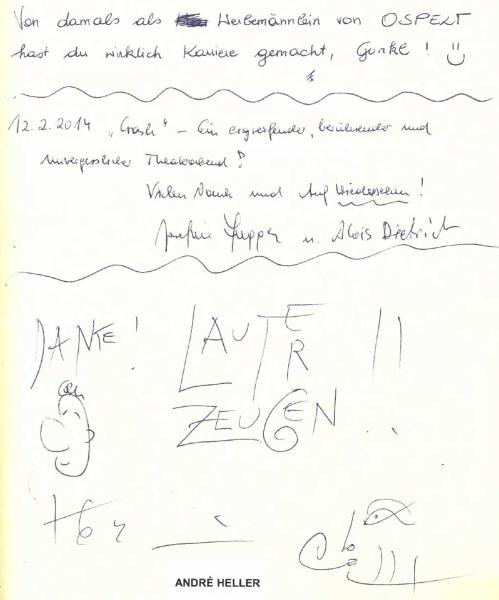 Von damals als Werbemännlein von OSPELT
hast du wirklich Karriere gemacht, Gunkl !
12.2.2014 „Crash" – Ein ergreifender, berührender und
unvergesslicher Theaterabend !
Vielen Dank und Auf Wiedersehen !
u. Alois Dietrich
DANKE ! LAUTER
ZEUGEN
ANDRÉ HELLER